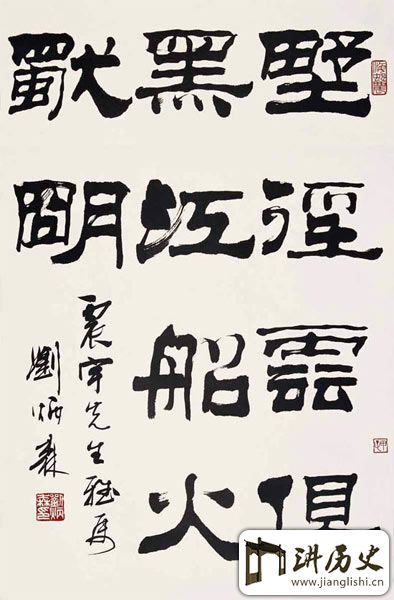 野徑雲俱
黑江船火
獨明
震宇先生雅属
劉炳森
讲历史
www.jianglishi.cn